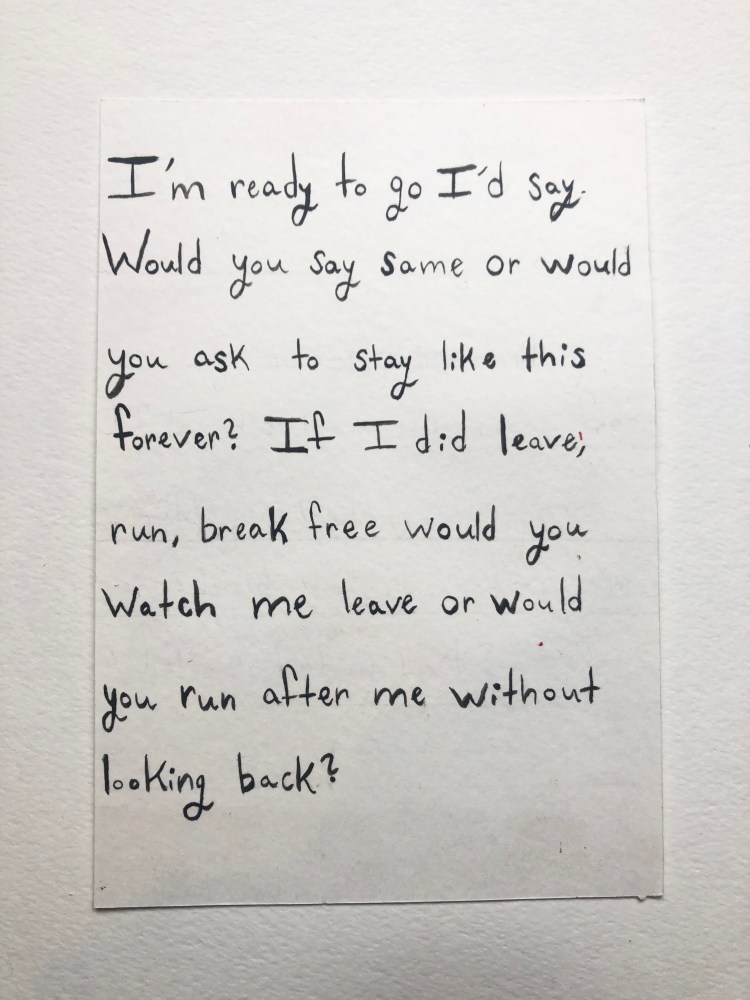 I'm ready to go I'd say.
Would you say same or would
you ask to stay like this
forever? If I did leave,
run, break free would you
Watch me leave or would
you run after me without
looking back?